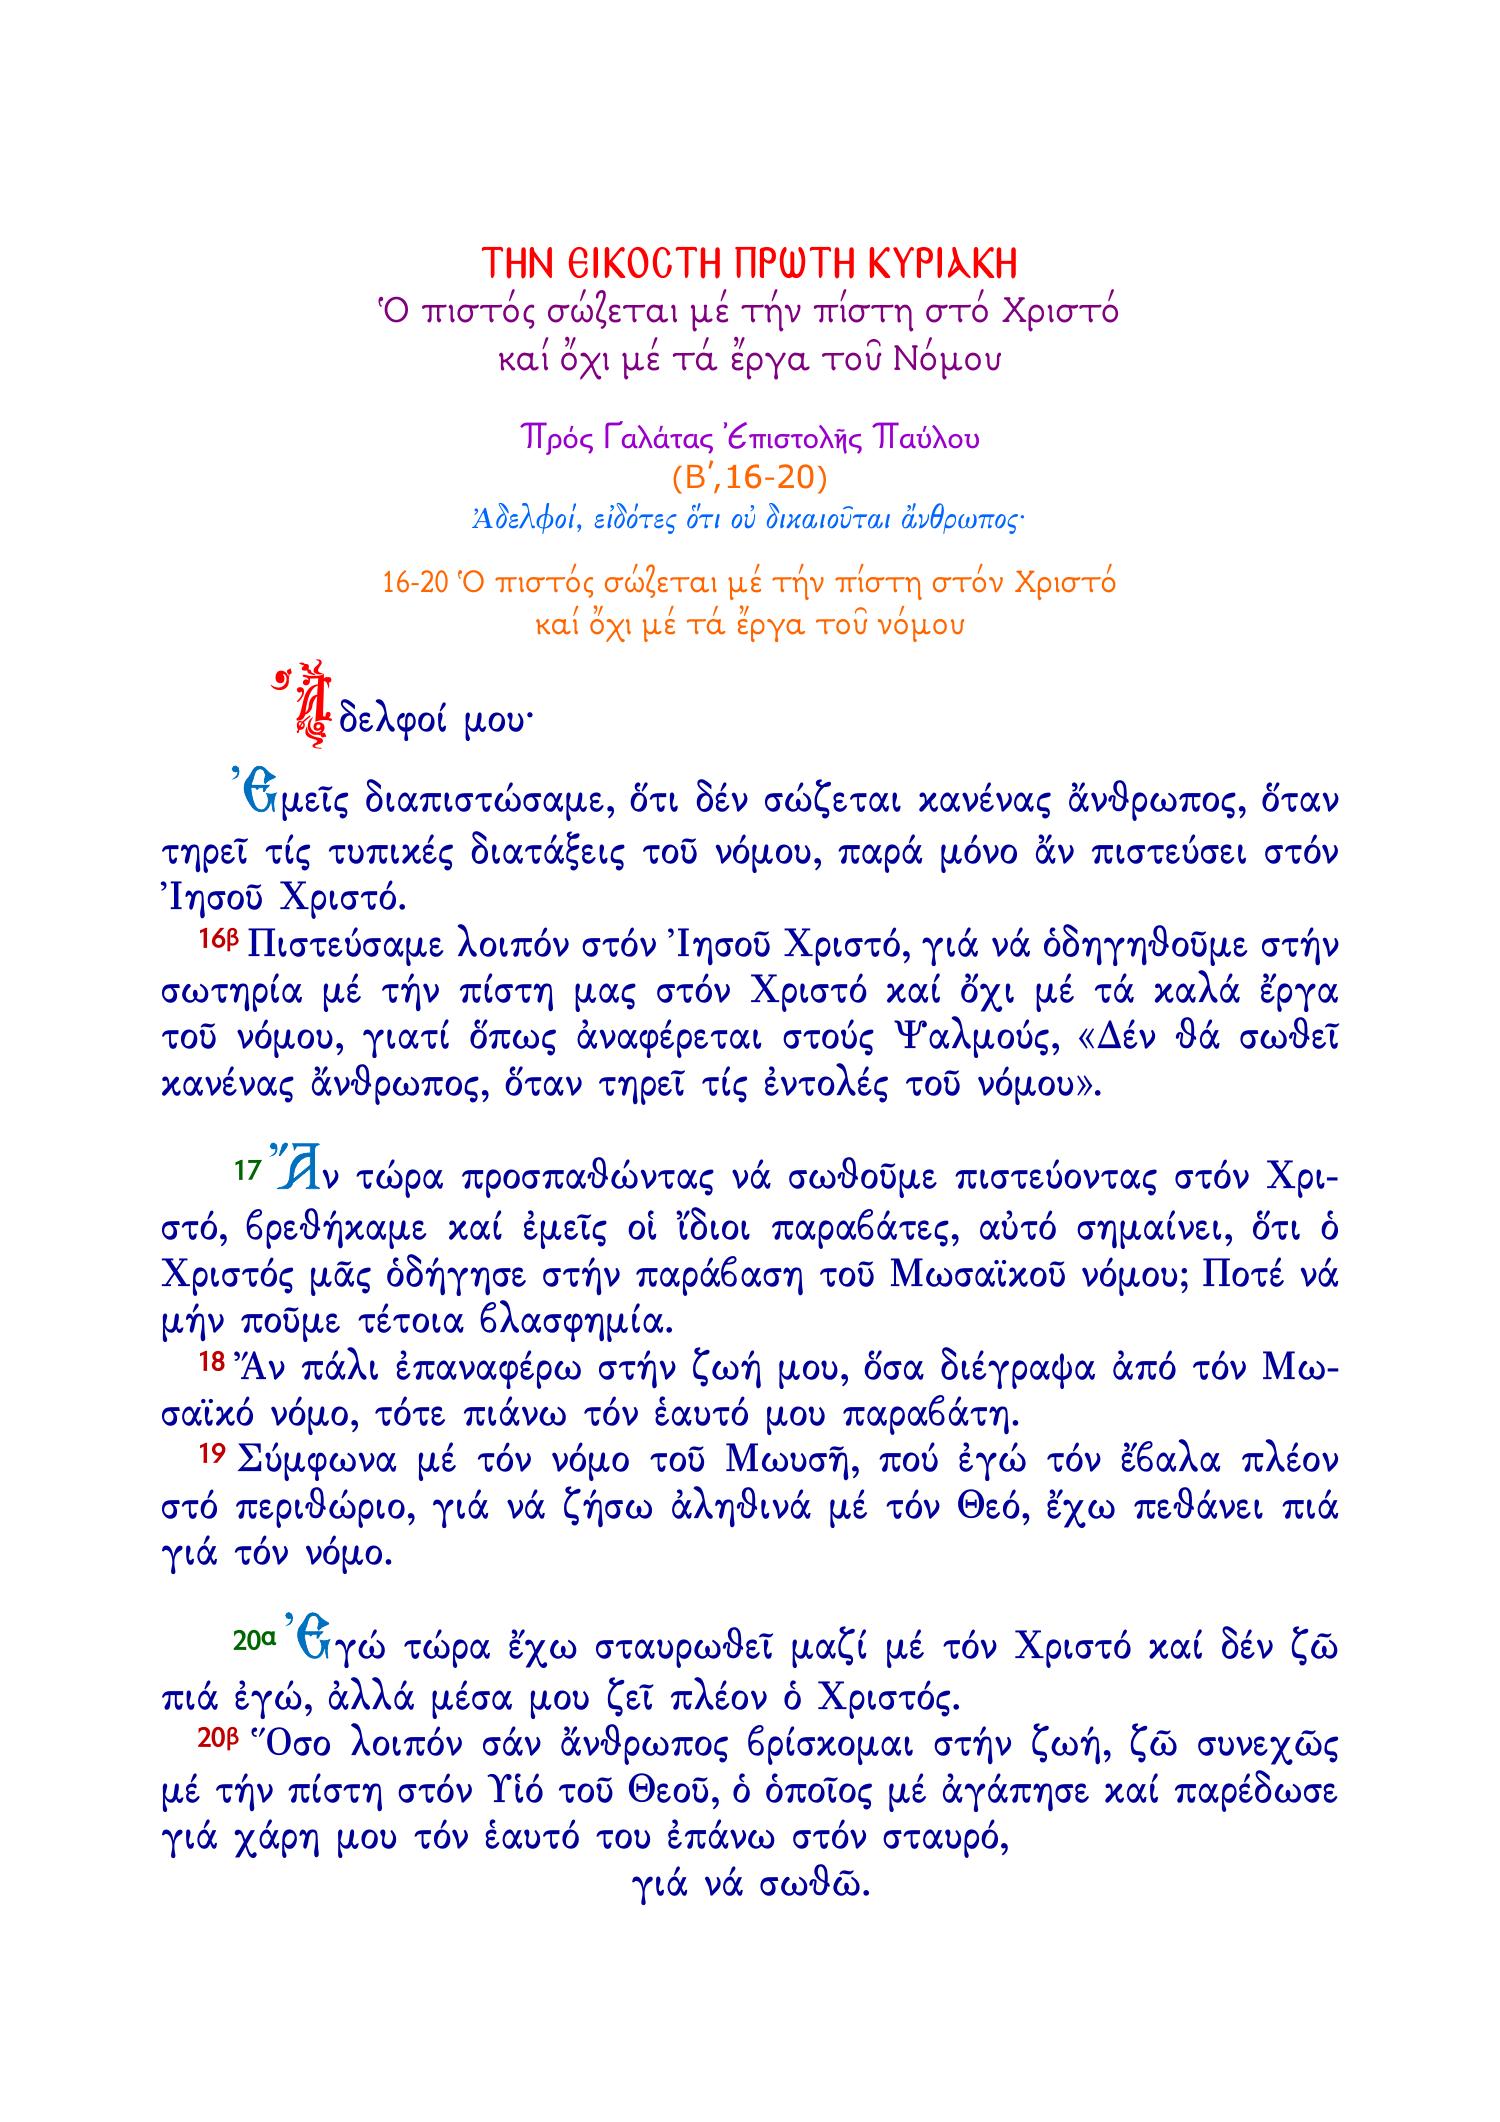 ΤΗΝ ΕΙΚΟСΤΗ ΠΡΩΤΗ ΚΥΡΙΑΚΗ
Ὁ πιστός σώζεται μέ τήν πίστη στό Χριστό
καί ὄχι μέ τά ἔργα τοῦ Νόμου
Πρός Γαλάτας Ἐπιστολῆς Παύλου
(Β΄,16-20)
Ἀδελφοί, εἰδότες ὅτι οὐ δικαιοῦται ἄνθρωπος·
16-20 Ὁ πιστός σώζεται μέ τήν πίστη στόν Χριστό
καί ὄχι μέ τά ἔργα τοῦ νόμου
Ἀδελφοί μου·
Ἐμεῖς διαπιστώσαμε, ὅτι δέν σώζεται κανένας ἄνθρωπος, ὅταν
τηρεῖ τίς τυπικές διατάξεις τοῦ νόμου, παρά μόνο ἄν πιστεύσει στόν
Ἰησοῦ Χριστό.
16β Πιστεύσαμε λοιπόν στόν Ἰησοῦ Χριστό, γιά νά ὁδηγηθοῦμε στήν
σωτηρία μέ τήν πίστη μας στόν Χριστό καί ὄχι μέ τά καλά ἔργα
τοῦ νόμου, γιατί ὅπως ἀναφέρεται στούς Ψαλμούς, «Δέν θά σωθεῖ
κανένας ἄνθρωπος, ὅταν τηρεῖ τίς ἐντολές τοῦ νόμου».
17 Ἄν τώρα προσπαθώντας νά σωθοῦμε πιστεύοντας στόν Χρι-
στό, βρεθήκαμε καί ἐμεῖς οἱ ἴδιοι παραβάτες, αὐτό σημαίνει, ὅτι ὁ
Χριστός μᾶς ὁδήγησε στήν παράβαση τοῦ Μωσαϊκοῦ νόμου; Ποτέ νά
μήν ποῦμε τέτοια βλασφημία.
18 Ἄν πάλι ἐπαναφέρω στήν ζωή μου, ὅσα διέγραψα ἀπό τόν Μω-
σαϊκό νόμο, τότε πιάνω τόν ἑαυτό μου παραβάτη.
19 Σύμφωνα μέ τόν νόμο τοῦ Μωυσῆ, πού ἐγώ τόν ἔβαλα πλέον
στό περιθώριο, γιά νά ζήσω ἀληθινά μέ τόν Θεό, ἔχω πεθάνει πιά
γιά τόν νόμο.
20α Ἐγώ τώρα ἔχω σταυρωθεῖ μαζί μέ τόν Χριστό καί δέν ζῶ
πιά ἐγώ, ἀλλά μέσα μου ζεῖ πλέον ὁ Χριστός.
20β Ὅσο λοιπόν σάν ἄνθρωπος βρίσκομαι στήν ζωή, ζῶ συνεχῶς
μέ τήν πίστη στόν Υἱό τοῦ Θεοῦ, ὁ ὁποῖος μέ ἀγάπησε καί παρέδωσε
γιά χάρη μου τόν ἑαυτό του ἐπάνω στόν σταυρό,
γιά νά σωθῶ.